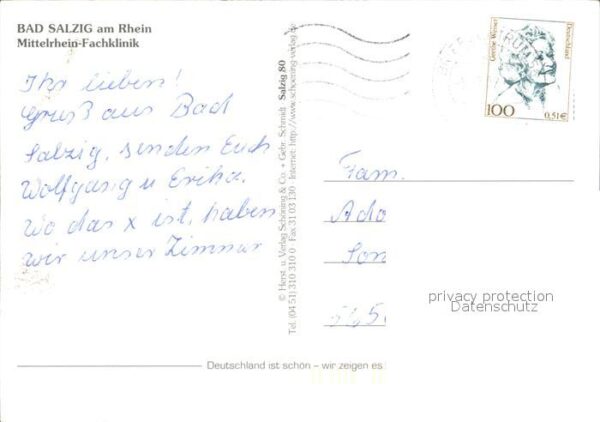 BAD SALZIG am Rhein
Mittelrhein-Fachklinik
Ihr lieben!
Gruß aus Bad
Salzig, senden Euch
Wolfgang u Erika.
Wo das x ist, haben
wir unser Zimmer
© Herst. u. Verlag Schöning & Co. + Gebr. Schmidt Salzig 80
Tel. (04 51) 310 310 0 Fax 31 03 130 · Internet: http://www.schoening-verlag.de
100
0,51€
Deutschland
Fam.
Ado
Son
privacy protection
Datenschutz
Deutschland ist schön – wir zeigen es